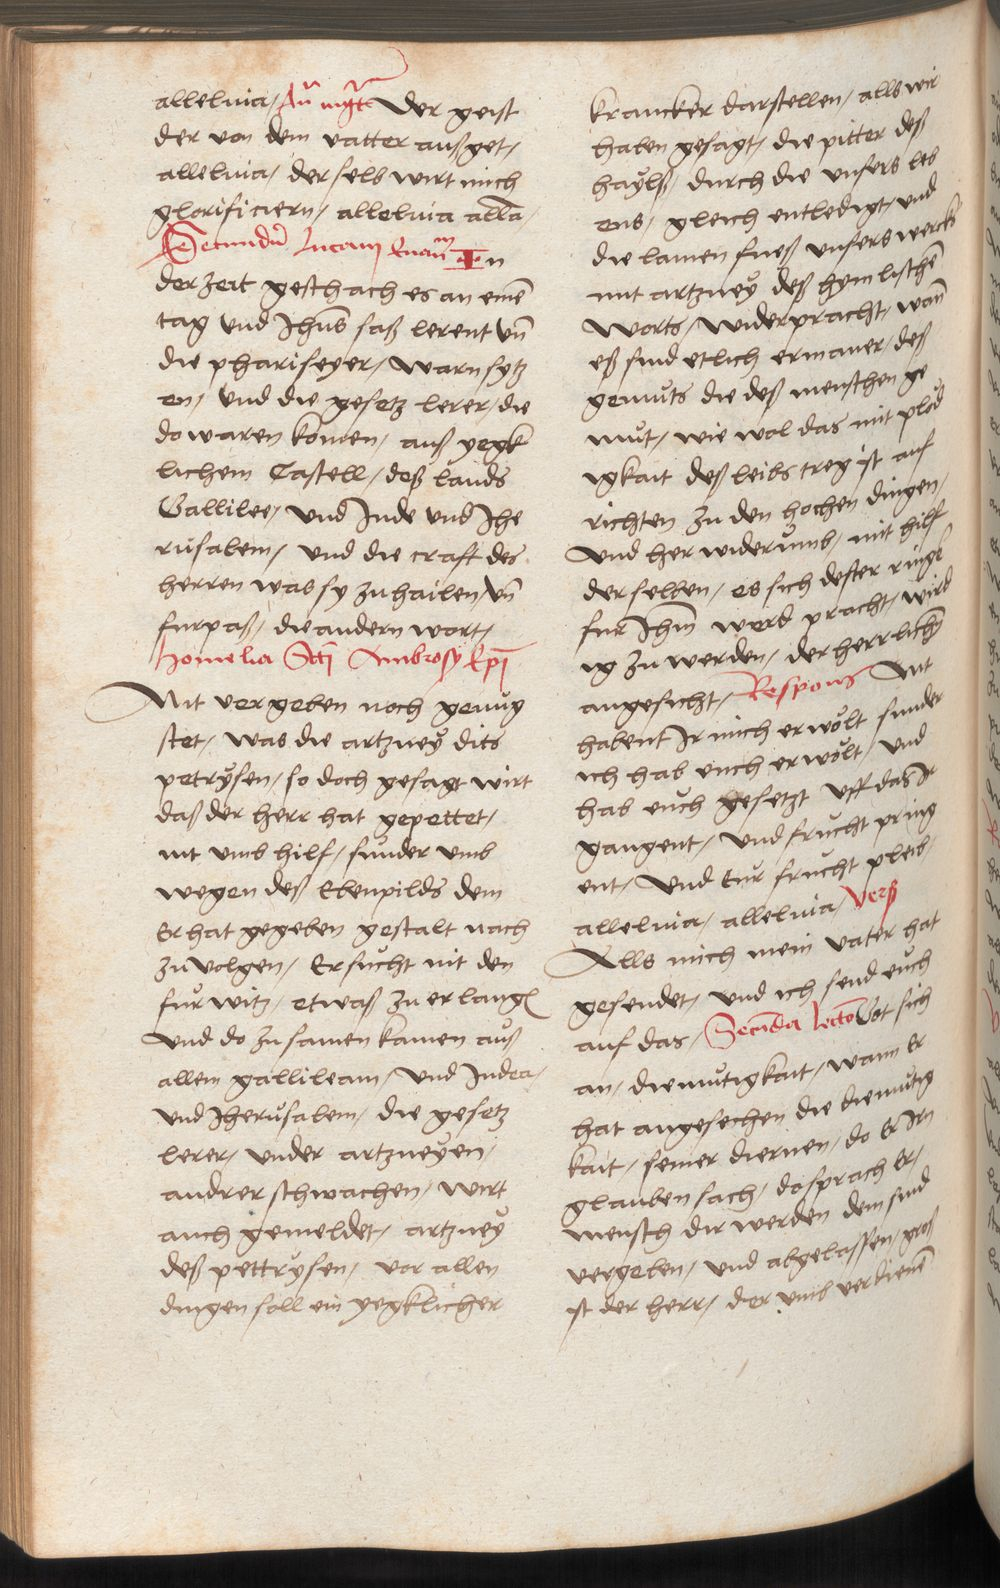 allelnia, Der geist
der von dem vatter außget,
allelnia, der selb wirt mich
glorificiern, allelnia alla,
Secundu Lucam Euan In
der zeit geschach es an eine
tag und Jhus saß lerent un
die phariseyer, warn sytz
en, und die gesetz lerer, die
do waren komen, auß yegk
lichem Castell, deß lands
Gallilee, und Jude und Jhe
rusalem, und die craft des
herren was sy zu hailen un
furpaß, die andern wort,
Homelia Sti Ambrosy Epi
Nit vergeben noch genug
stet, was die artzney dits
petrysen, so doch gesagt wirt
daß der herr hat gepettet,
nit umb hilf, sunder umb
wegen deß Ebenpilds dem
Er hat gegeben gestalt nach
zu volgen, Er sucht nit den
furwitz, etwaß zu erlang
und do zu samen kamen auß
allem gallileam, und Judea,
und Jherusalem, die gesetz
lerer, under artzneyen,
andrer schwachen, wirt
auch gemeldet, artzney
deß pettrysen, vor allen
dingen soll ein yegklicher
krancker darstellen, alls wir
haben gesagt, die pitter deß
hayls, durch die unsers leb
ens, gleich entledigt, und
die lamen fueß unsers wercks
mit artzney deß hymlische
worts, widerpracht, wan
eß sind etlich ermaner, deß
gemuts die deß menschen ge
mut, wie wol das mit plod
igkait deß leibs treg ist auf
richten zu den hochen dingen,
und her widerumb, mit hilf
der selben, es sich dester ringk
fur Jhm werd pracht, wird
ig zu werden, der herrlich
angesicht, Respons Nit
habent Jr mich erwolt sunder
ich hab euch erwolt, und
hab euch gesetzt uff das Jr
gangent, und frucht pring
ent, und Eur frucht pleib,
allelnia, allelnia, Verß
Alls mich mein vater hat
gesendet, und ich send euch
auf das, Secunda lectio Got sich
an, diemutigkait, wann Er
hat angesechen die diemutig
kait, seiner diernen, do Er Irn
glauben sach, do sprach Er,
mensch dir werden dein sund
vergeben, und abgelassen, groß
ist der herr, der umb verdiene